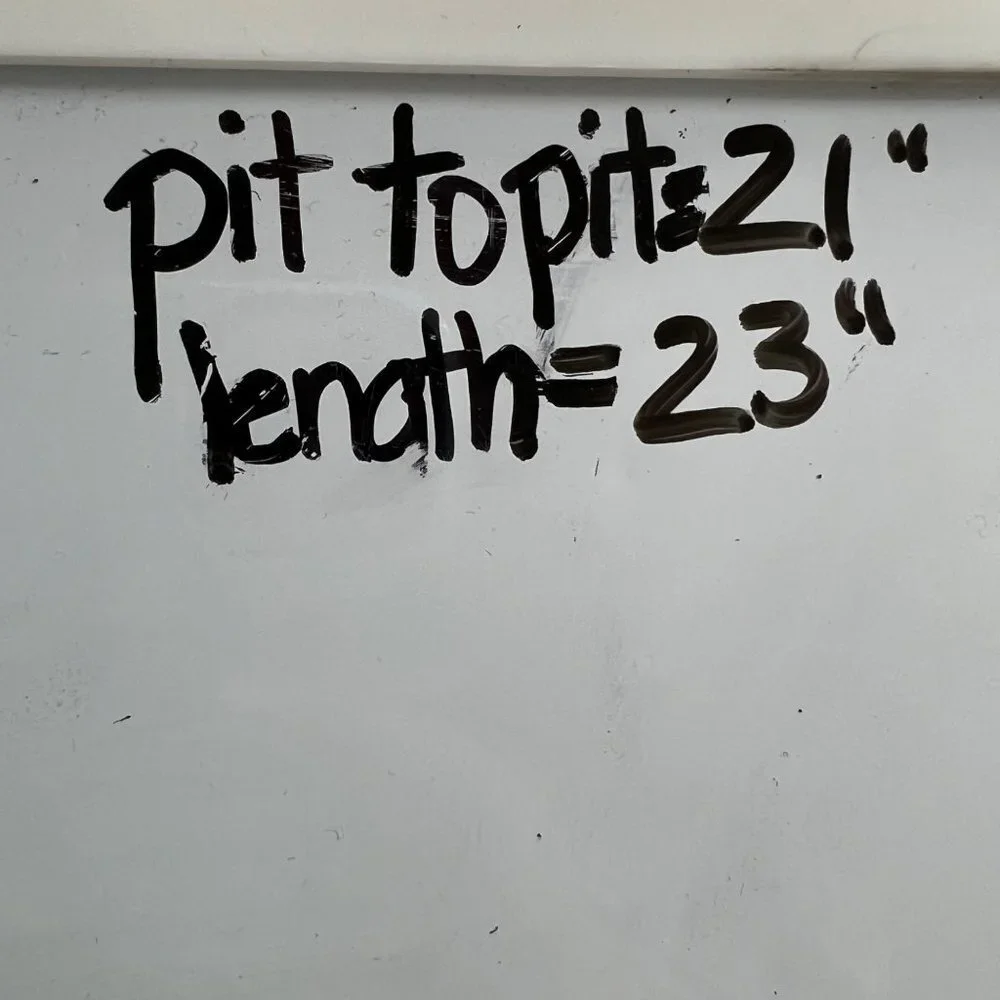 pit to pit = 21"
length = 23"